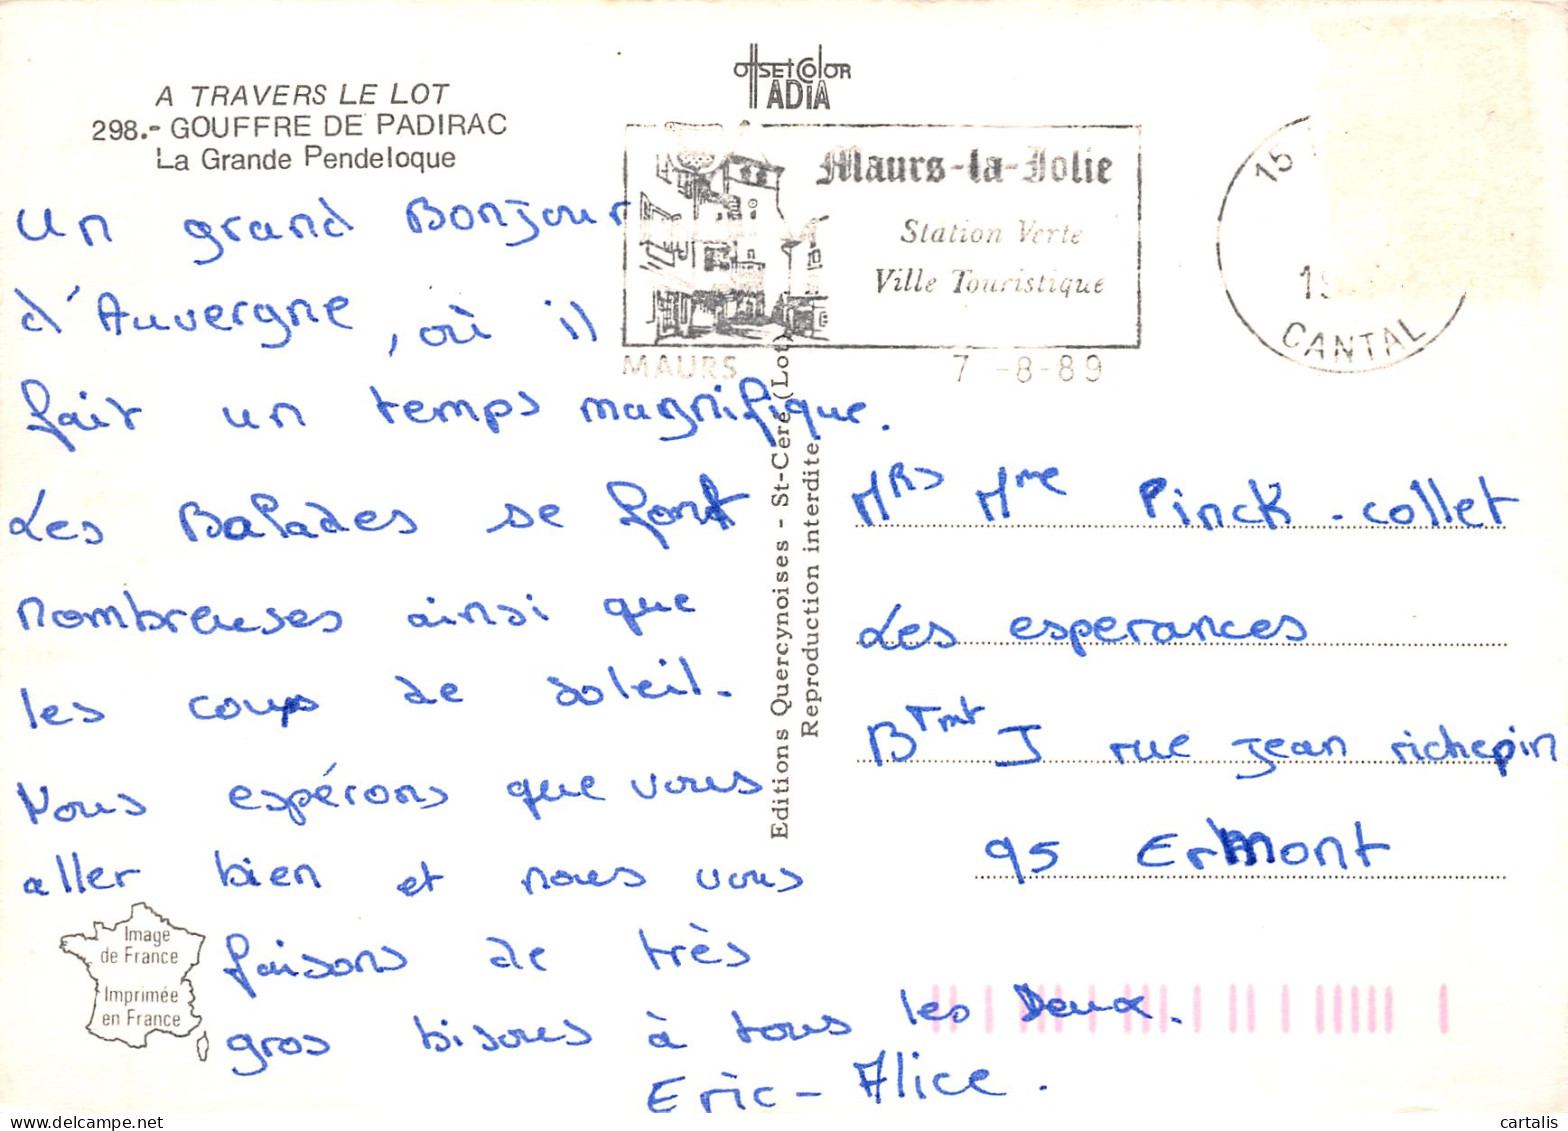 A TRAVERS LE LOT
298.- GOUFFRE DE PADIRAC
La Grande Pendeloque
offset color
ADIA
Maurs-la-Jolie
Station Verte
Ville Touristique
MAURS
7 -8-89
15
19
CANTAL
un grand Bonjour
d'Auvergne, où il
fait un temps magnifique.
Les Balades se font
nombreuses ainsi que
les coups de soleil.
Nous espérons que vous
aller bien et nous vous
faisons de très
gros bisous à tous les Deux.
Eric - Alice.
Editions Quercynoises - St-Céré (Lot)
Reproduction interdite
MRS Mme Pinck - collet
Les esperances
BTmt J rue jean richepin
95 Ermont
Image
de France
Imprimée
en France
cartalis
www.delcampe.net